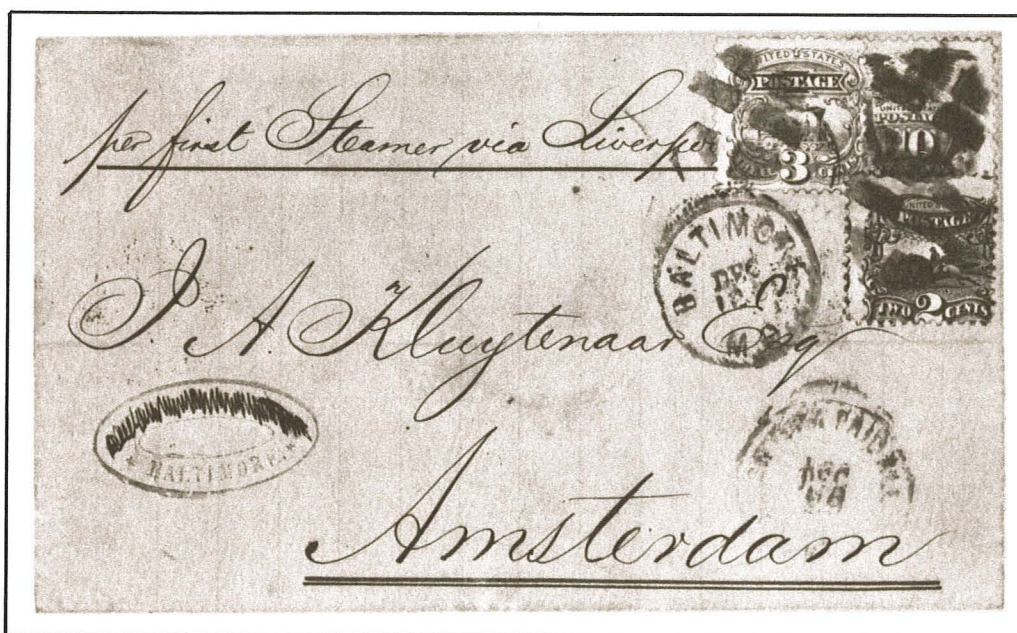 per first Steamer via Liverpo
UNITED STATES
POSTAGE
3
UNITED STATES
POSTAGE
10
UNITED
POSTAGE
TWO 2 CENTS
BALTIMORE
DEC
J A Kluytenaar Esq
BALTIMORE
PAID
DEC
Amsterdam